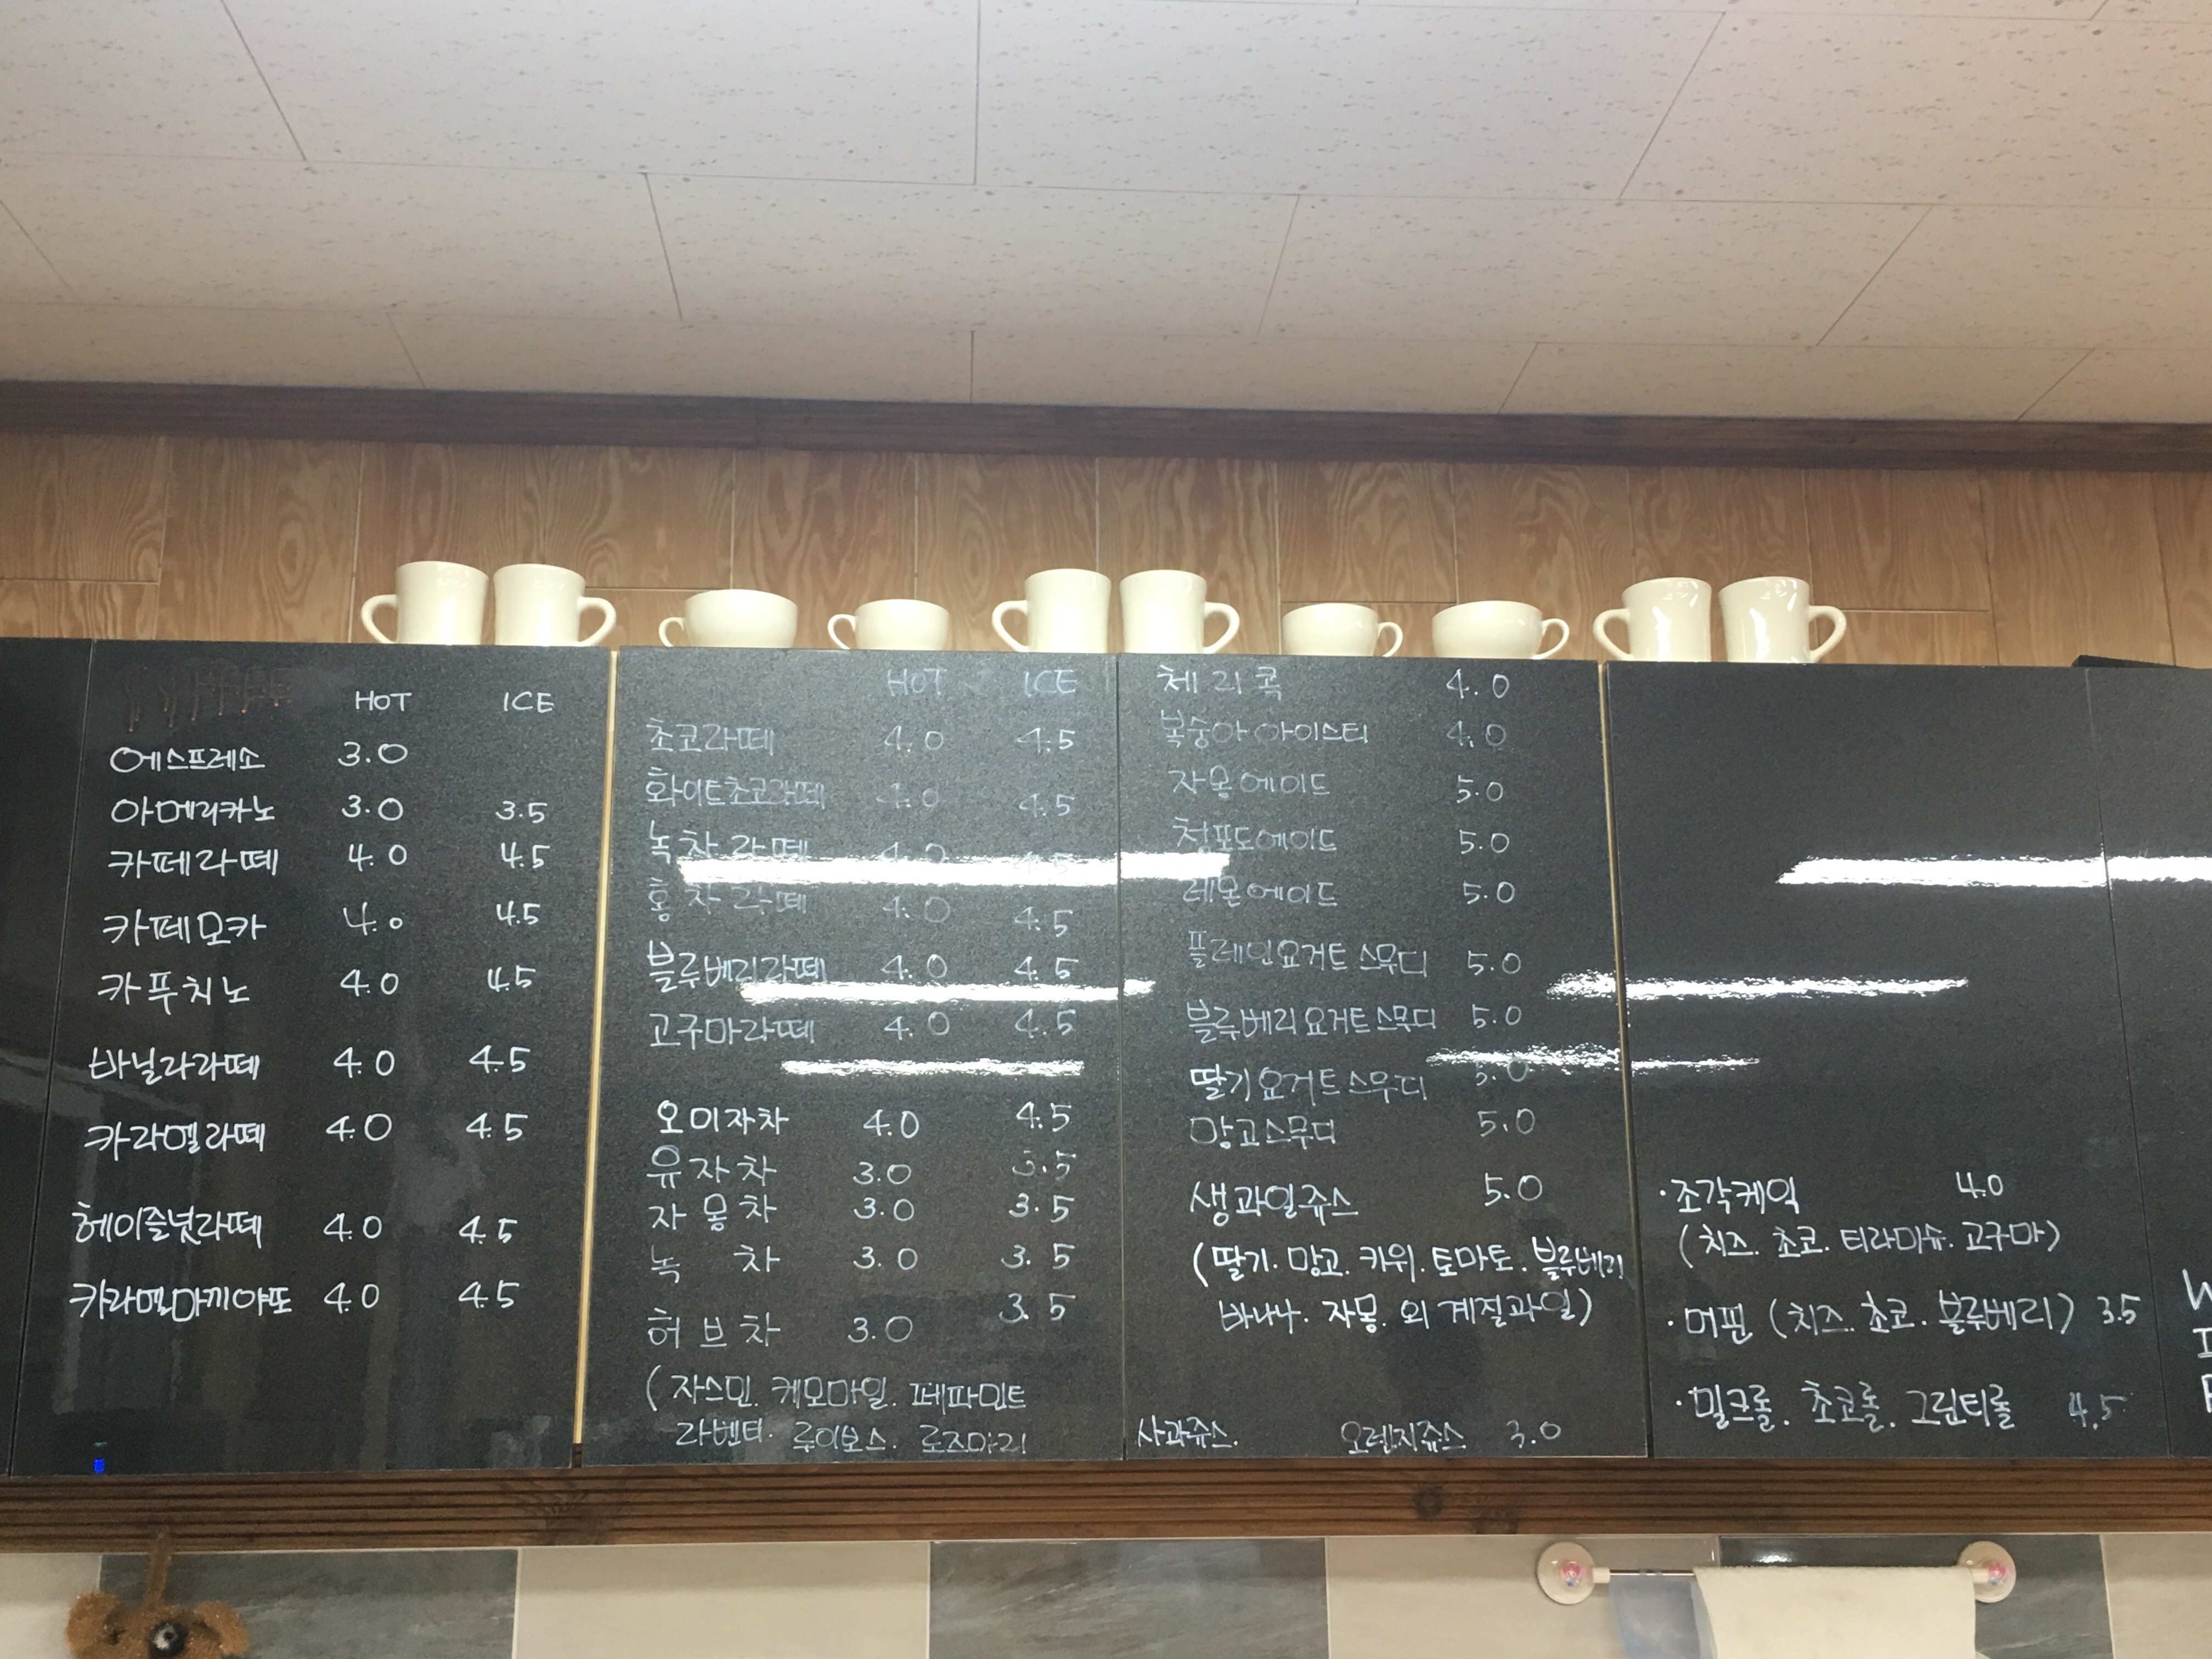 COFFEE HOT ICE
에스프레소 3.0
아메리카노 3.0 3.5
카페라떼 4.0 4.5
카페모카 4.0 4.5
카푸치노 4.0 4.5
바닐라라떼 4.0 4.5
카라멜라떼 4.0 4.5
헤이즐넛라떼 4.0 4.5
카라멜마끼야또 4.0 4.5
HOT ICE
초코라떼 4.0 4.5
화이트초코라떼 4.0 4.5
녹차라떼 4.0 4.5
홍차라떼 4.0 4.5
블루베리라떼 4.0 4.5
고구마라떼 4.0 4.5
오미자차 4.0 4.5
유자차 3.0 3.5
자몽차 3.0 3.5
녹 차 3.0 3.5
허브차 3.0 3.5
(자스민. 케모마일. 페파민트
라벤더. 루이보스. 로즈마리
체리콕 4.0
복숭아아이스티 4.0
자몽에이드 5.0
청포도에이드 5.0
레몬에이드 5.0
플레인요거트스무디 5.0
블루베리요거트스무디 5.0
딸기요거트스무디 5.0
망고스무디 5.0
생과일쥬스 5.0
(딸기. 망고. 키위. 토마토. 블루베리
바나나. 자몽. 외 계절과일)
사과쥬스. 오렌지쥬스 3.0
·조각케익 4.0
(치즈. 초코. 티라미슈. 고구마)
·머핀 (치즈. 초코. 블루베리) 3.5
·밀크롤. 초코롤. 그린티롤 4.5